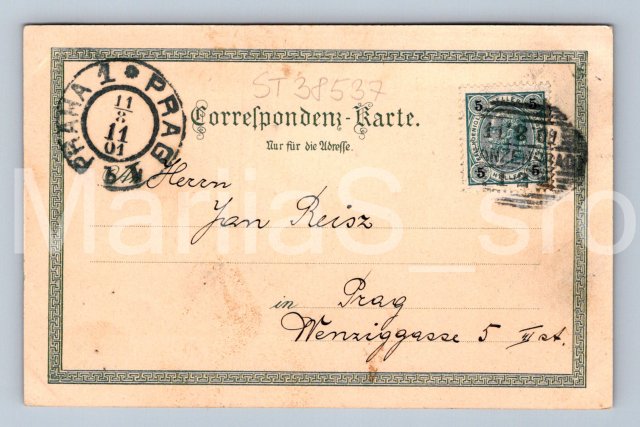 ST38537
PRAHA 1 * PRAG
11/8
11
01
Correspondenz-Karte.
Nur für die Adresse.
5 5
11 8 01
5 5
Herrn
Jan Reisz
in Prag
Wenziggasse 5 III st.
ManiaS_sro